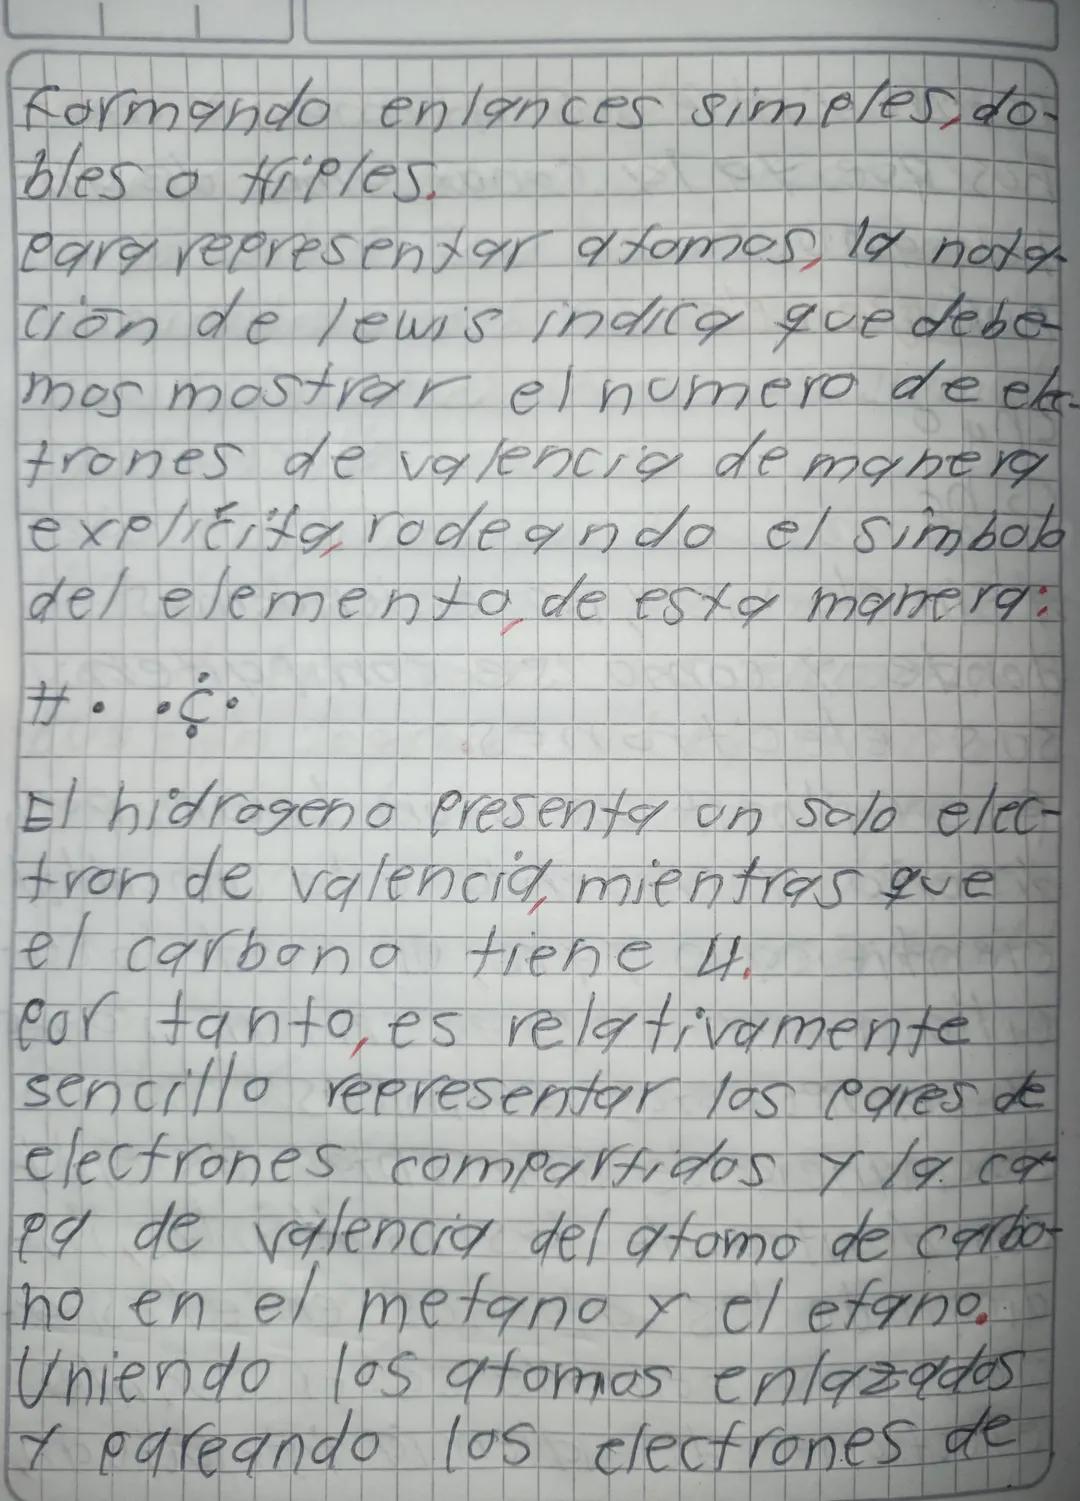 Formando enlances simples, do-
bles o triples.
para representar atomos, la nota-
ción de lewis indica que debe-
mos mostrar el numero de elec-
trones de valencia de manera
explicita, rodeando el simbolo
del elemento, de esta manera:
H· ·C·
El hidrogeno presenta un solo elec-
tron de valencia, mientras que
el carbono tiene 4.
por tanto, es relativamente
sencillo representar los pares de
electrones compartidos y la ca
pa de valencia del atomo de carbo-
no en el metano y el etano.
Uniendo los atomos enlazados
y pareando los electrones de